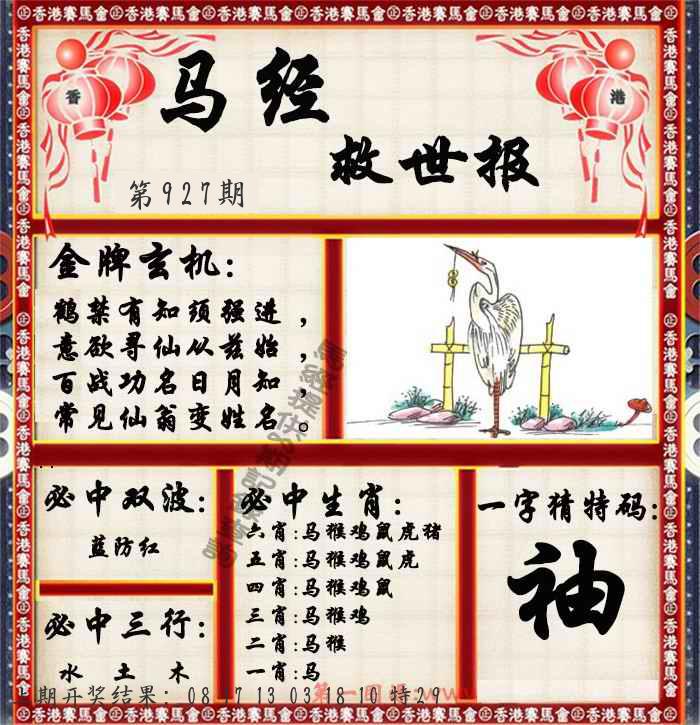 香
港
马经
救世报
第927期
金牌玄机:
鹤禁有知须强进，
意欲寻仙从兹始，
百战功名日月知，
常见仙翁变姓名。
必中双波:
蓝防红
必中三行:
水 土 木
必中生肖:
六肖:马猴鸡鼠虎猪
五肖:马猴鸡鼠虎
四肖:马猴鸡鼠
三肖:马猴鸡
二肖:马猴
一肖:马
一字猜特码:
袖
期开奖结果: 08 17 13 03 18 10 特29
香港賽馬會